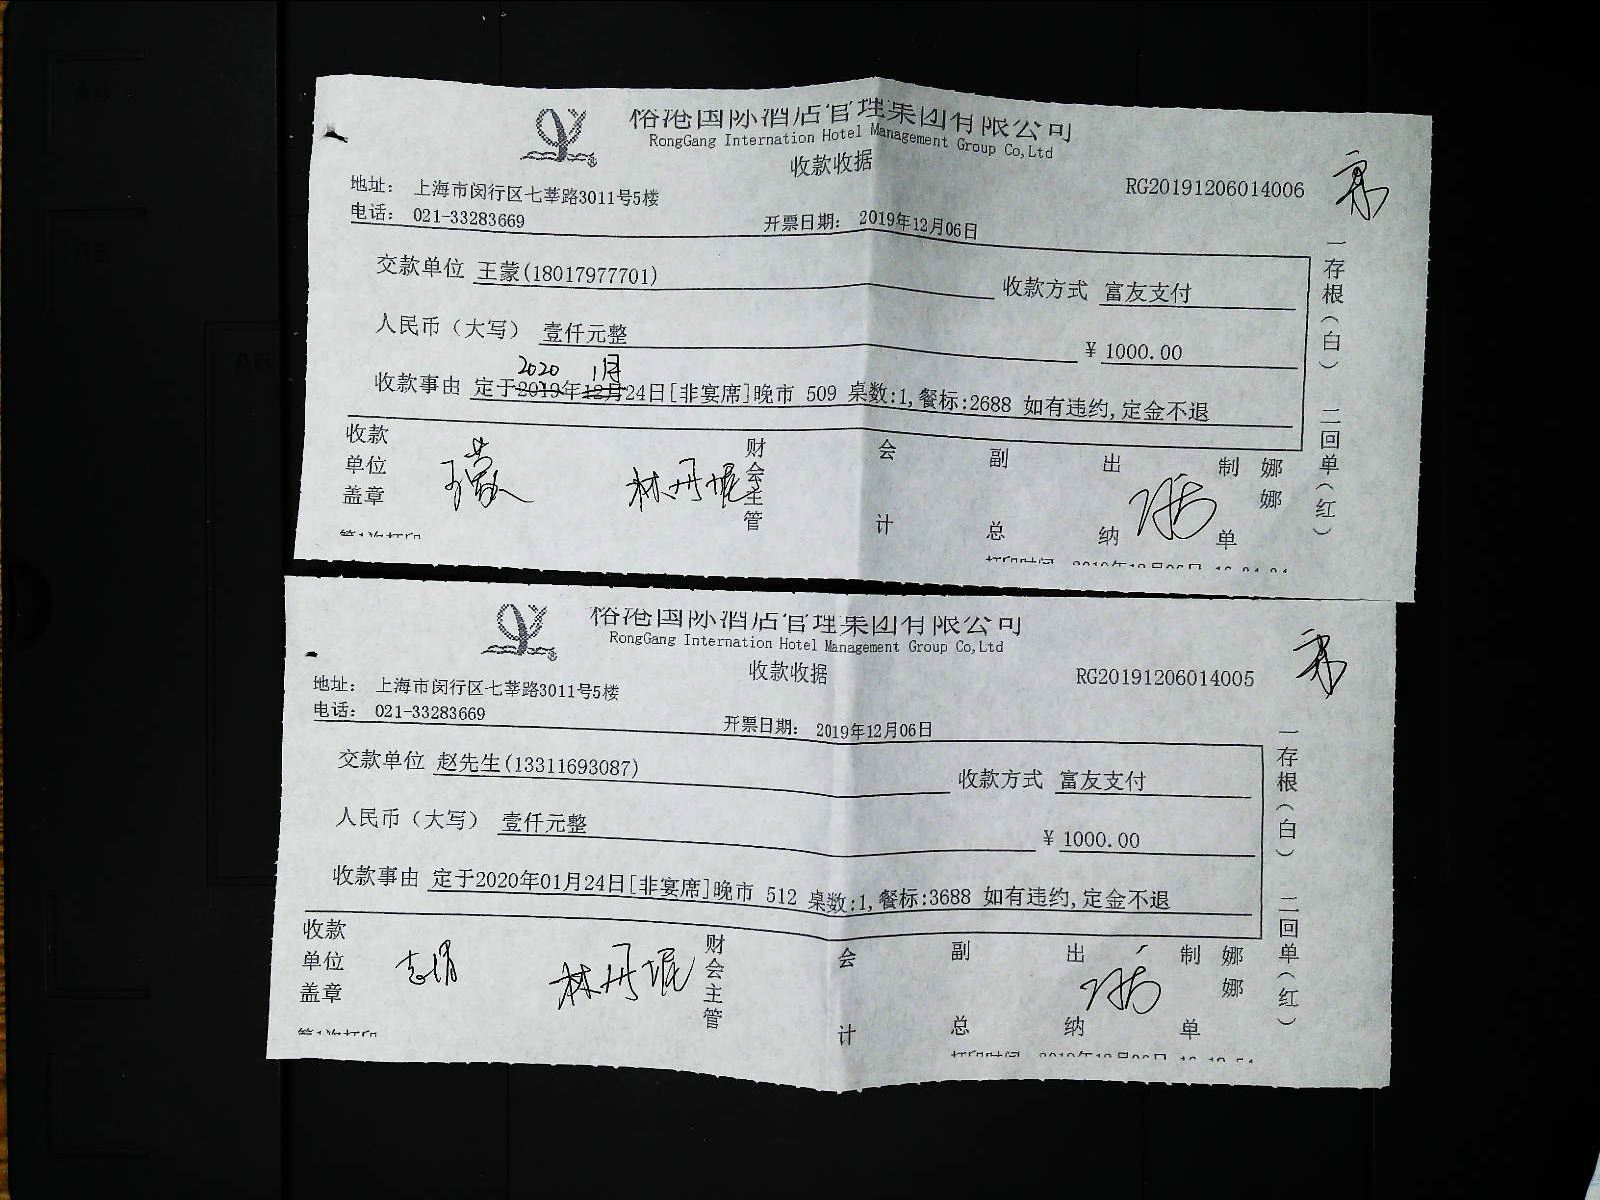 裕港国际酒店管理集团有限公司
RongGang Internation Hotel Management Group Co,Ltd
收款收据
RG20191206014006
地址： 上海市闵行区七莘路3011号5楼
电话： 021-33283669
开票日期： 2019年12月06日
交款单位 王蒙(18017977701) 收款方式 富友支付
人民币（大写） 壹仟元整 ¥ 1000.00
2020 1月
收款事由 定于2019年12月24日[非宴席]晚市 509 桌数:1,餐标:2688 如有违约,定金不退
收款单位盖章 王蒙 林丹妮 财会主管 会计 副总 出纳 制单 娜娜
一存根（白） 二回单（红）
第1次打印
裕港国际酒店管理集团有限公司
RongGang Internation Hotel Management Group Co,Ltd
收款收据
RG20191206014005
地址： 上海市闵行区七莘路3011号5楼
电话： 021-33283669
开票日期： 2019年12月06日
交款单位 赵先生(13311693087) 收款方式 富友支付
人民币（大写） 壹仟元整 ¥ 1000.00
收款事由 定于2020年01月24日[非宴席]晚市 512 桌数:1,餐标:3688 如有违约,定金不退
收款单位盖章 财会主管 会计 副总 出纳 制单 娜娜
一存根（白） 二回单（红）
第1次打印